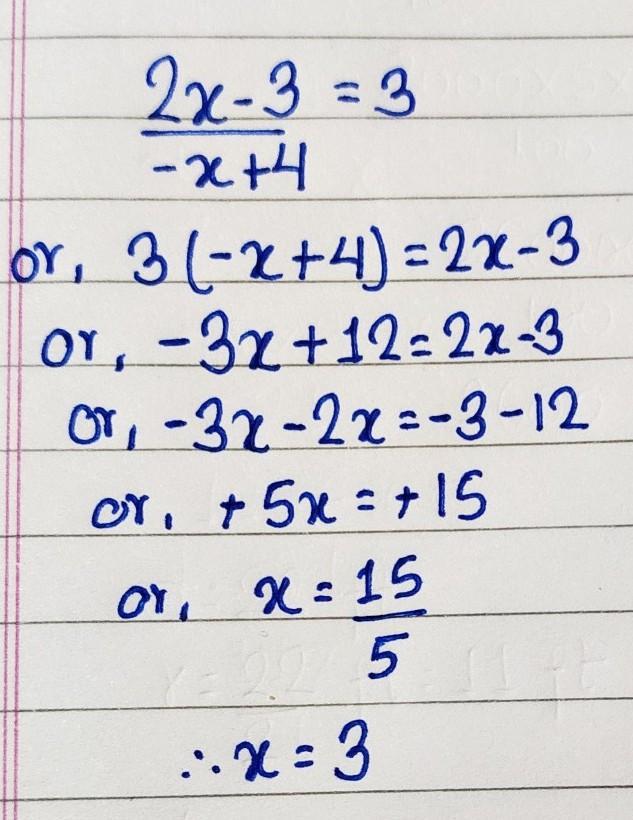 2x-3 = 3
-x+4
or, 3(-x+4)=2x-3
or, -3x+12=2x-3
or, -3x-2x=-3-12
or, +5x=+15
or, x=15
5
∴x=3